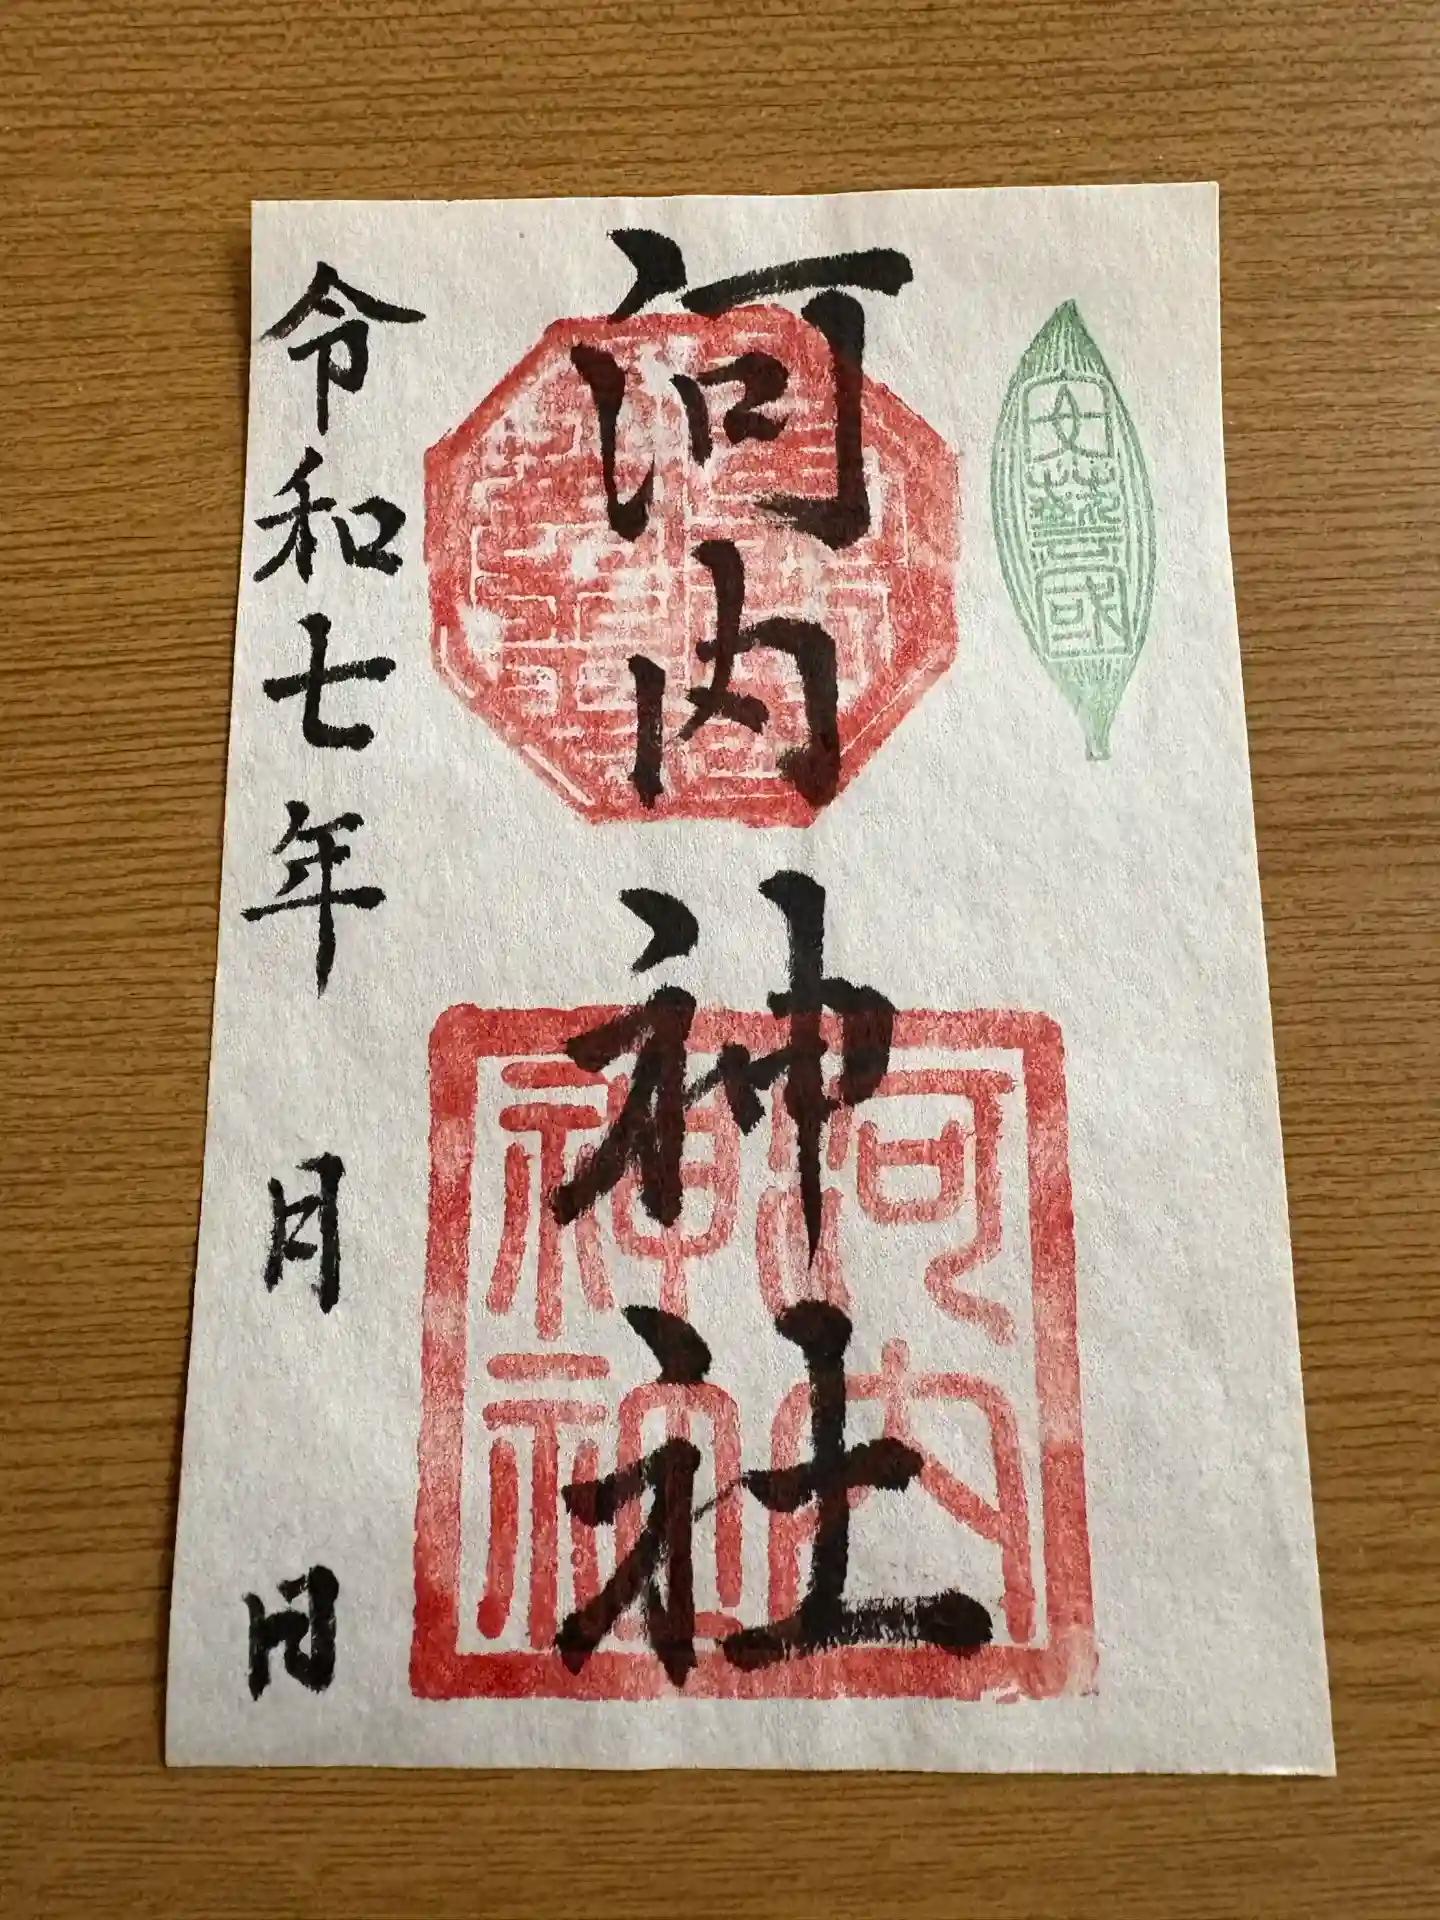 安藝國
河内神社
河内
神社
令和七年　月　日